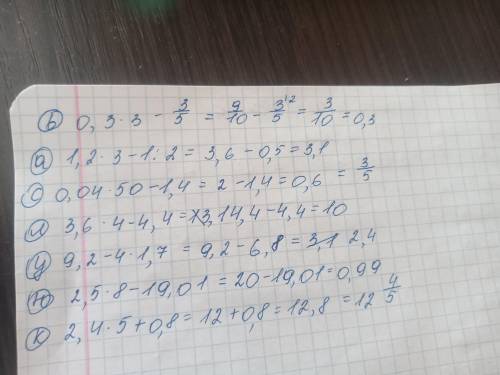 ь 0,3·3 - 3/5 = 9/10 - 3/5 ^2 = 3/10 = 0,3
а 1,2·3-1:2 = 3,6-0,5=3,1
с 0,04·50-1,4=2-1,4=0,6 = 3/5
л 3,6·4-4,4=14,4-4,4=10
у 9,2-4·1,7=9,2-6,8=2,4
ю 2,5·8-19,01=20-19,01=0,99
к 2,4·5+0,8=12+0,8=12,8=12 4/5